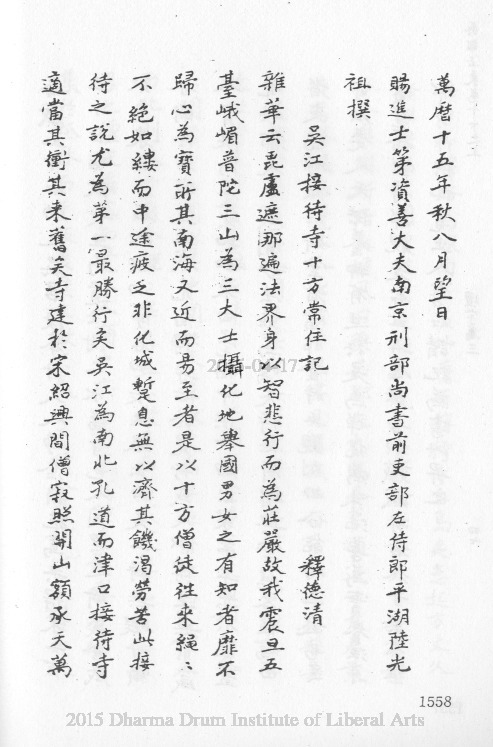 萬曆十五年秋八月望日
賜進士第資善大夫南京刑部尚書前吏部左侍郎平湖陸光
祖撰
吳江接待寺十方常住記
釋德清
雜華云毘盧遮那遍法界身以智悲行而為莊嚴故我震旦五
臺峨嵋普陀三山為三大士攝化地舉國男女之有知者靡不
歸心為寶所其南海又近而易至者是以十方僧徒徃來繩〻
不絕如縷而中途疲乏非化城蹔息無以濟其饑渴勞苦此接
待之說尤為第一最勝行矣吳江為南北孔道而津口接待寺
適當其衝其来舊矣寺建於宋紹興間僧寂照開山額承天萬
1558
2015 Dharma Drum Institute of Liberal Arts